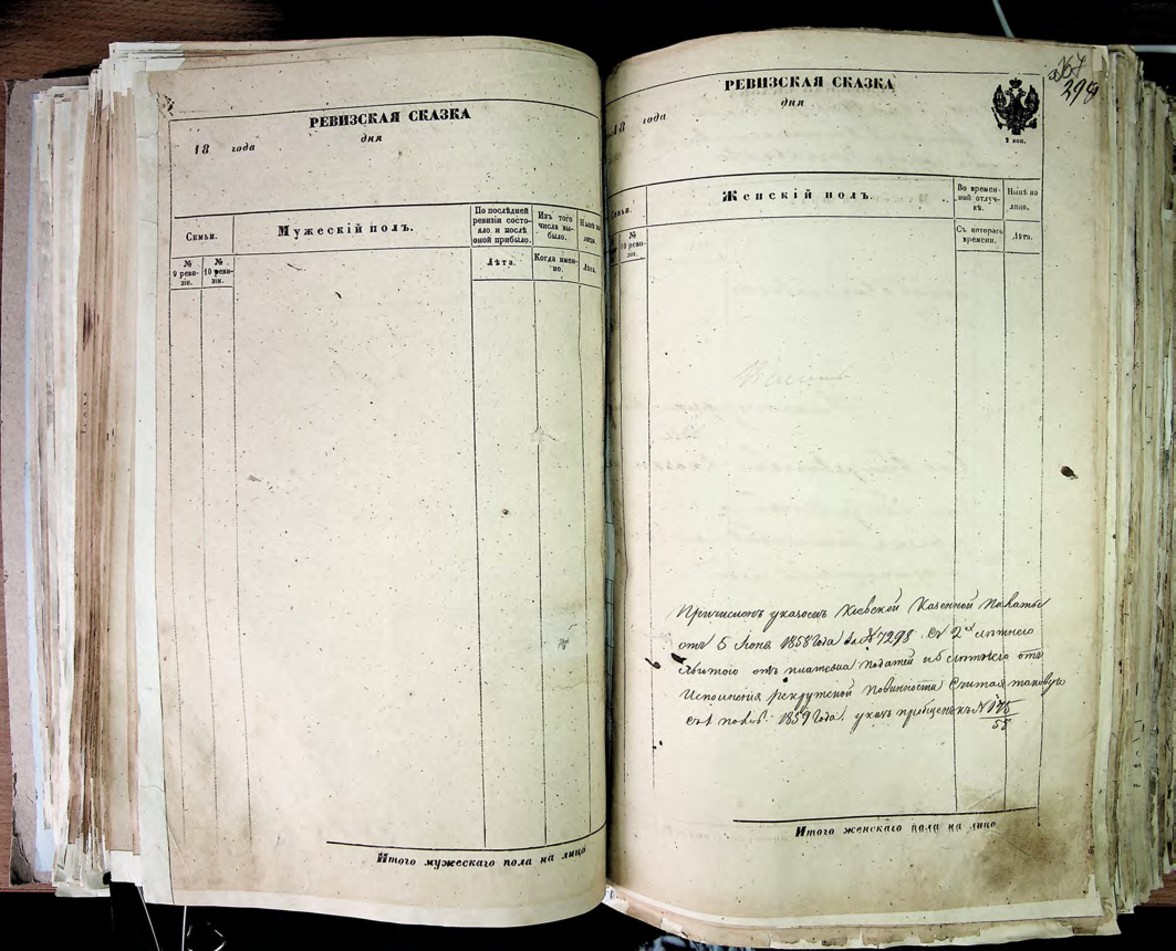 РЕВИЗСКАЯ СКАЗКА
дня
18 года
Семьи.
Мужескій полъ.
По послѣдней
ревизіи состо-
яло и послѣ
оной прибыло.
Изъ того
числа вы-
было.
Нынѣ на
лицо.
№
9 реви-
зіи.
№
10 реви-
зіи.
Лѣта.
Когда имен-
но.
Лѣта.
Итого мужескаго пола на лицо
298
РЕВИЗСКАЯ СКАЗКА
дня
18 года
Женскій полъ.
Во времен-
ной отлуч-
кѣ.
Нынѣ на
лицо.
№
10 реви-
зіи.
Съ котораго
времени.
Лѣта.
Причисленъ указомъ Кіевской Казенной Палаты
отъ 5 Іюня 1858 года за № 7298 съ 2хъ лѣтнею
льготою отъ платежа податей и 5 лѣтнею отъ
Исполненія рекрутской повинности Считая таковую
съ 1859 года. указъ къ № 175/58
Итого женскаго пола на лицо